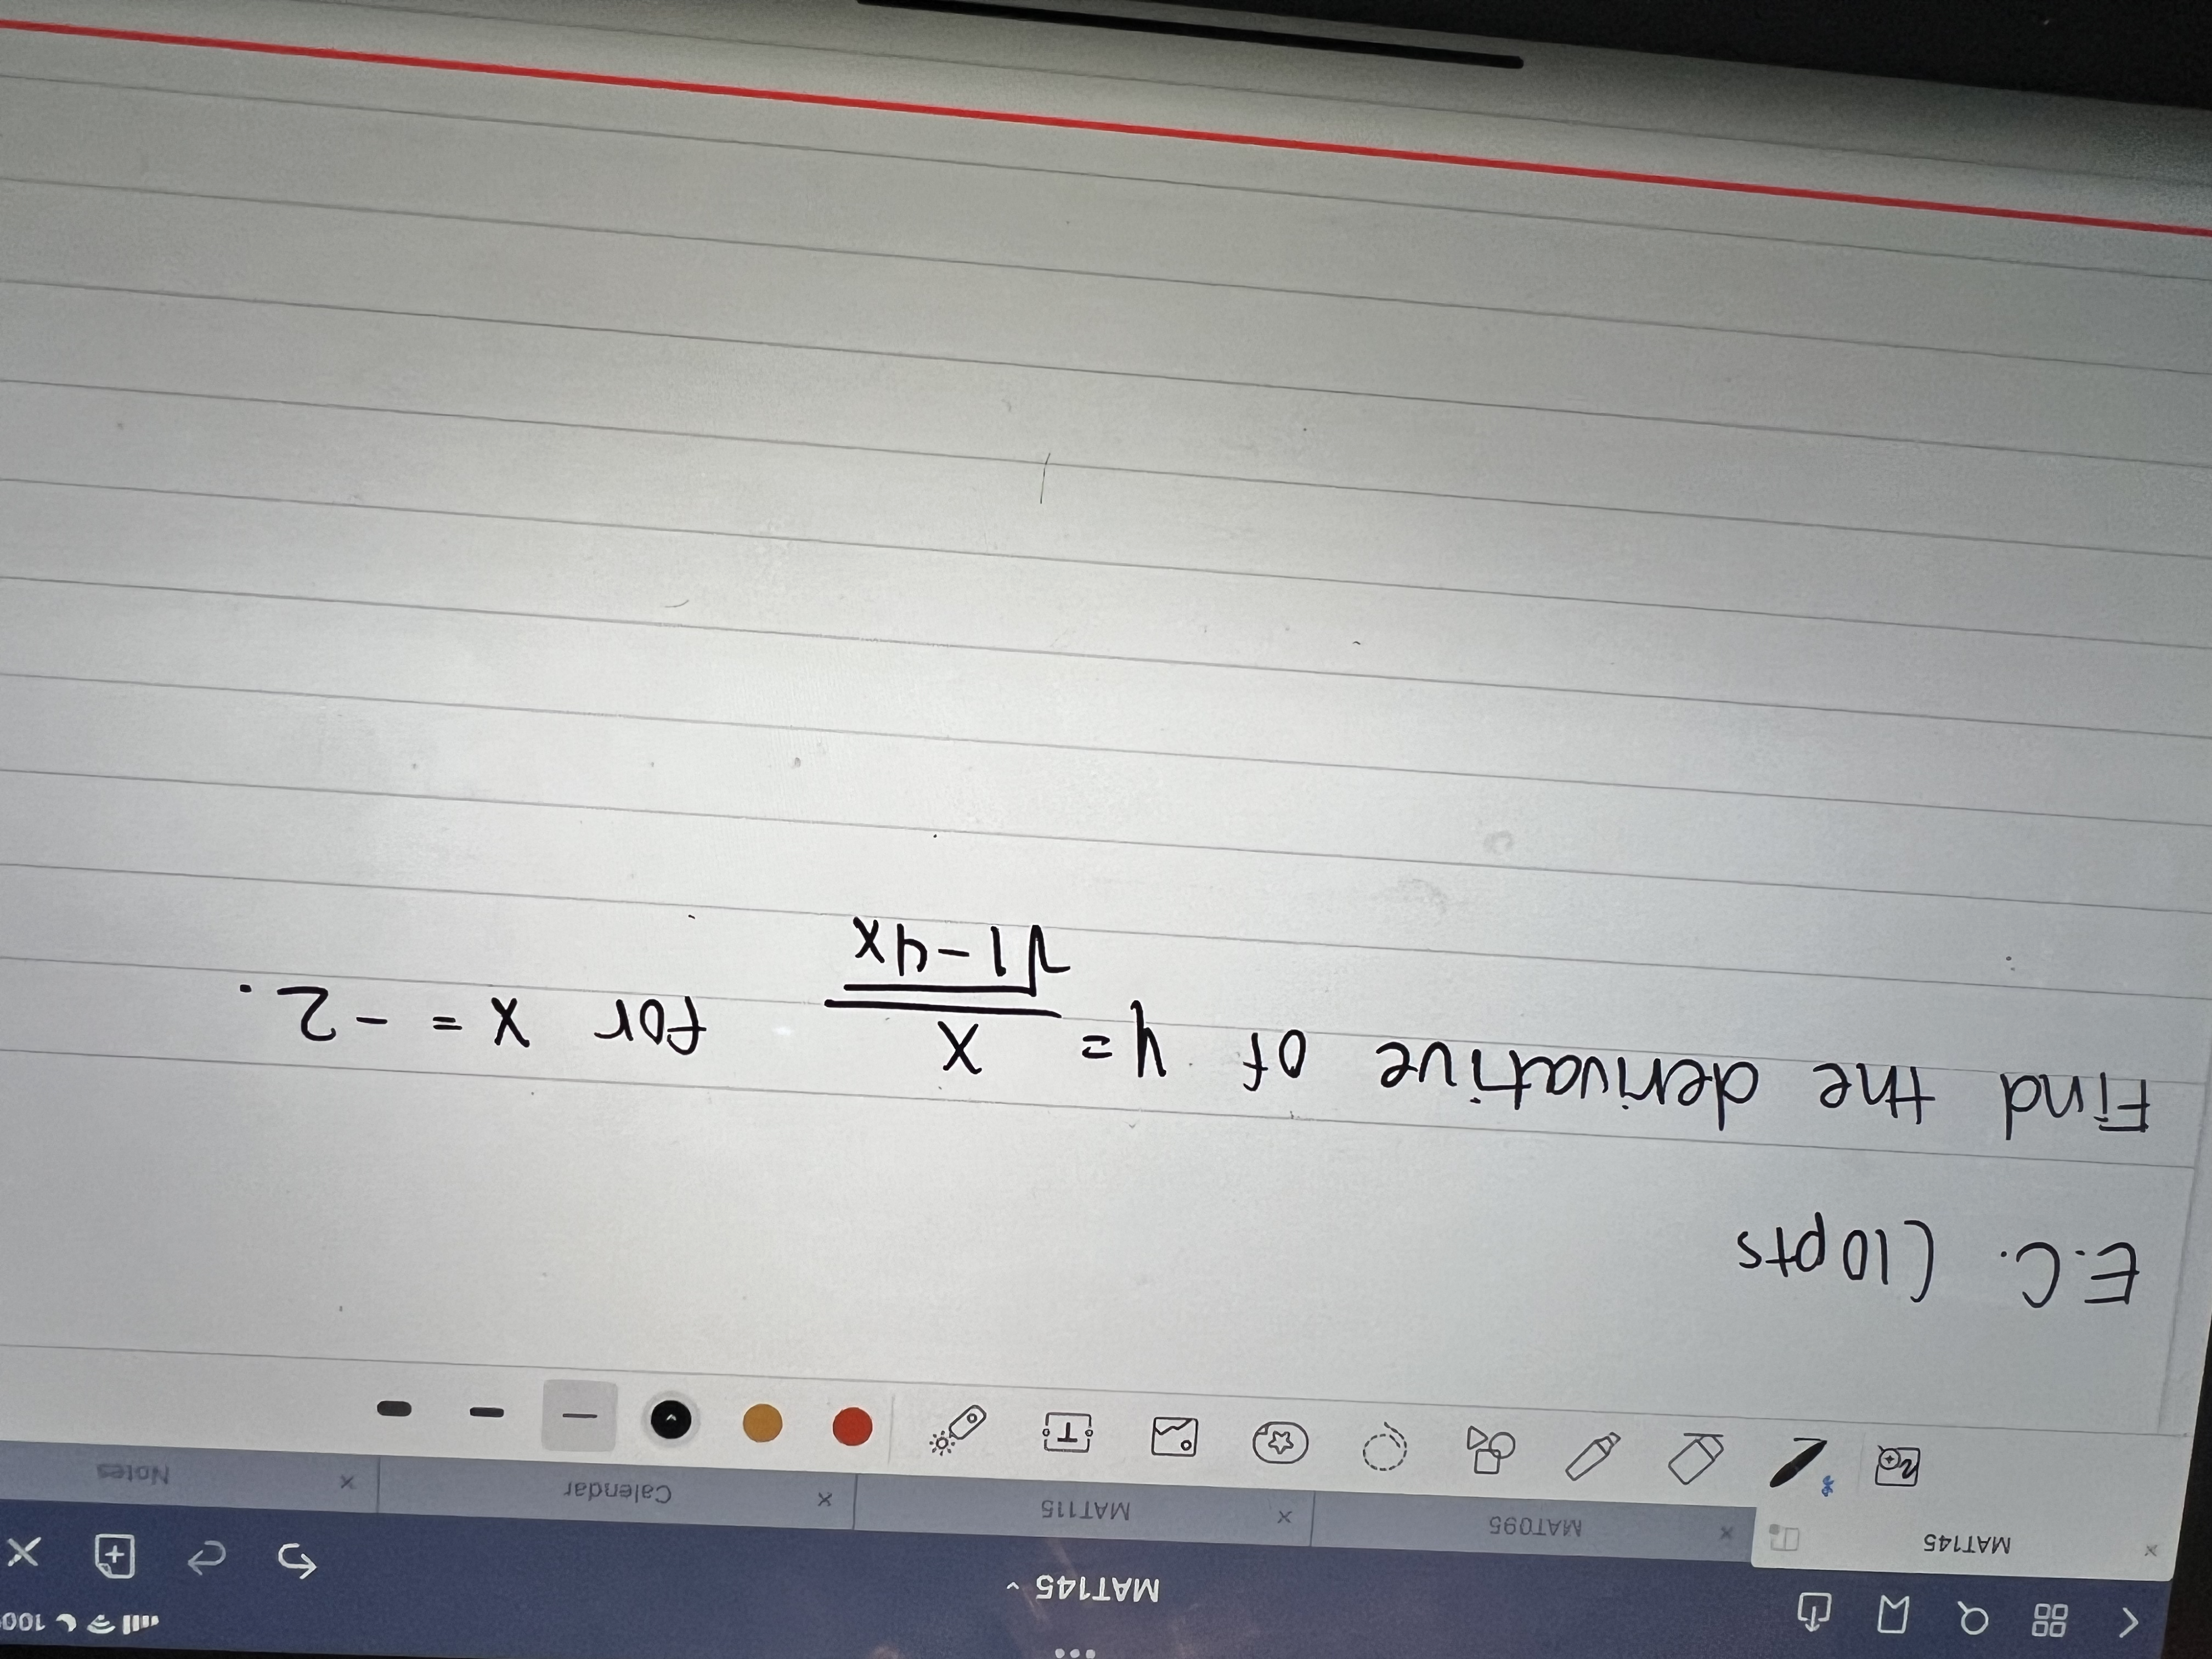 100
MAT145
MAT145
MAT095
MAT115
Calendar
Notes
T
E.C. (10pts
Find the derivative of y = x / √1-4x for x = -2.